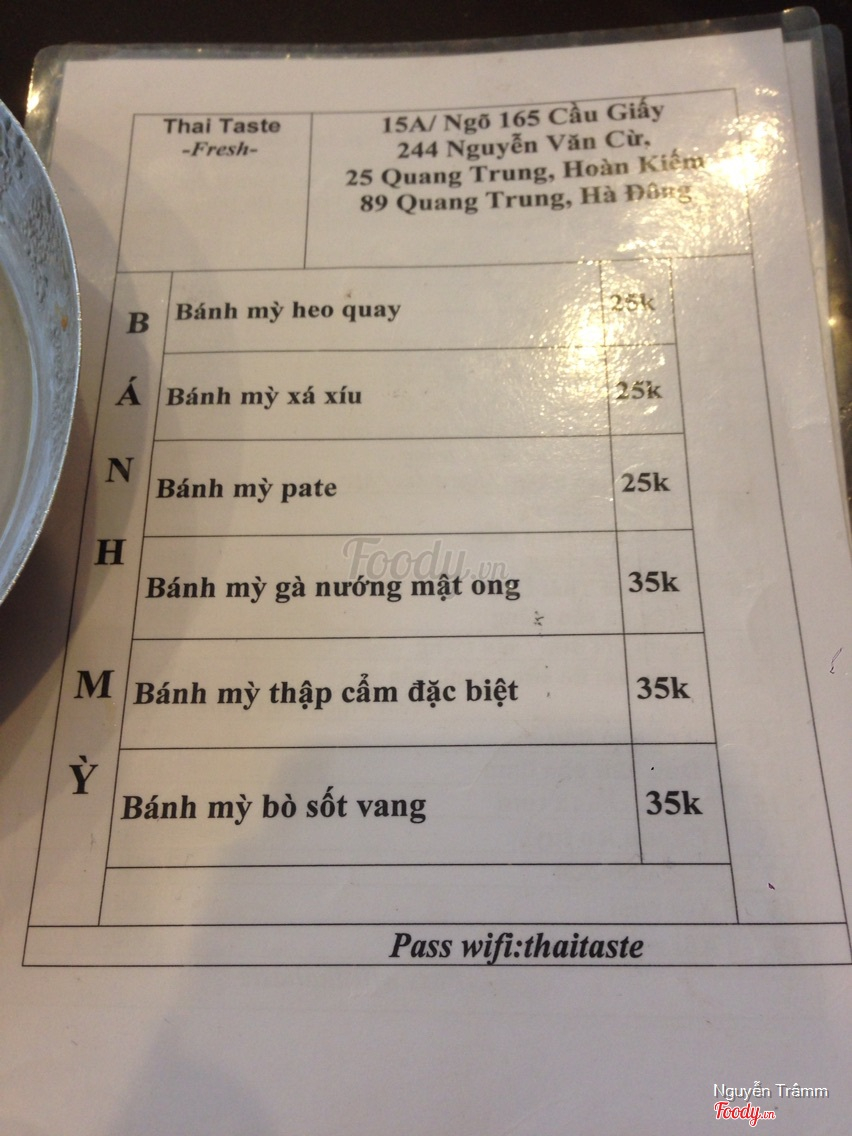 Thai Taste
-Fresh-
15A/ Ngõ 165 Cầu Giấy
244 Nguyễn Văn Cừ,
25 Quang Trung, Hoàn Kiếm
89 Quang Trung, Hà Đông
BÁNH MỲ
Bánh mỳ heo quay 25k
Bánh mỳ xá xíu 25k
Bánh mỳ pate 25k
Bánh mỳ gà nướng mật ong 35k
Bánh mỳ thập cẩm đặc biệt 35k
Bánh mỳ bò sốt vang 35k
Pass wifi:thaitaste
Foody.vn
Nguyễn Trâmm
Foody.vn